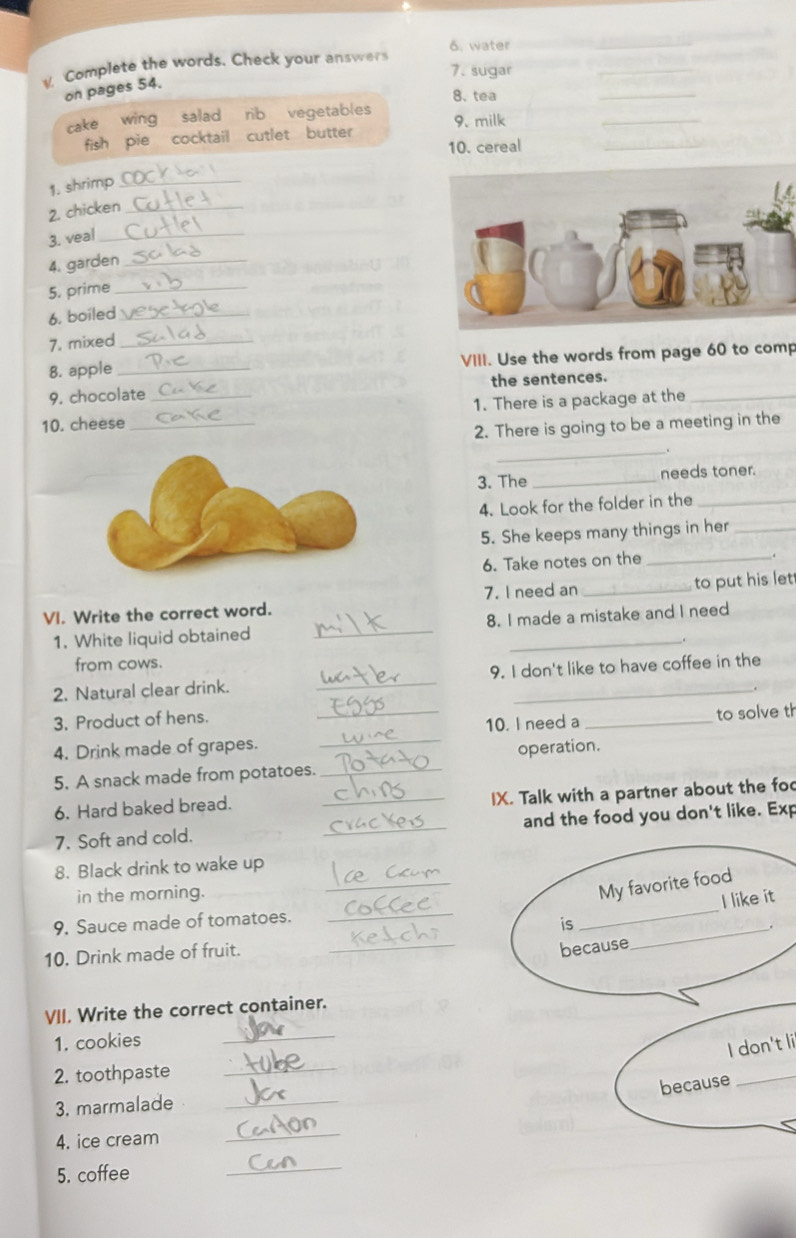 V. Complete the words. Check your answers
on pages 54.
cake wing salad rib vegetables
fish pie cocktail cutlet butter
1. shrimp cocktail
2. chicken Cutlet
3. veal Cutlet
4. garden salad
5. prime rib
6. boiled
7. mixed Salad
8. apple Pie
9. chocolate Cake
10. cheese cake
VI. Write the correct word.
1. White liquid obtained milk
from cows.
2. Natural clear drink. watler
3. Product of hens. Eggs
4. Drink made of grapes. wine
5. A snack made from potatoes. Potato
6. Hard baked bread. chips
7. Soft and cold. crackers
8. Black drink to wake up Ice
in the morning.
9. Sauce made of tomatoes. coffee
10. Drink made of fruit.
VII. Write the correct container.
1. cookies Jar
2. toothpaste tube
3. marmalade Jar
4. ice cream Carton
5. coffee Can
6. water
7. sugar
8. tea
9. milk
10. cereal
VIII. Use the words from page 60 to comp
the sentences.
1. There is a package at the
2. There is going to be a meeting in the
.
3. The needs toner.
4. Look for the folder in the
5. She keeps many things in her
6. Take notes on the .
7. I need an to put his lett
8. I made a mistake and I need
.
9. I don't like to have coffee in the
.
10. I need a to solve th
operation.
IX. Talk with a partner about the foo
and the food you don't like. Exp
My favorite food
is I like it
because .
I don't li
because